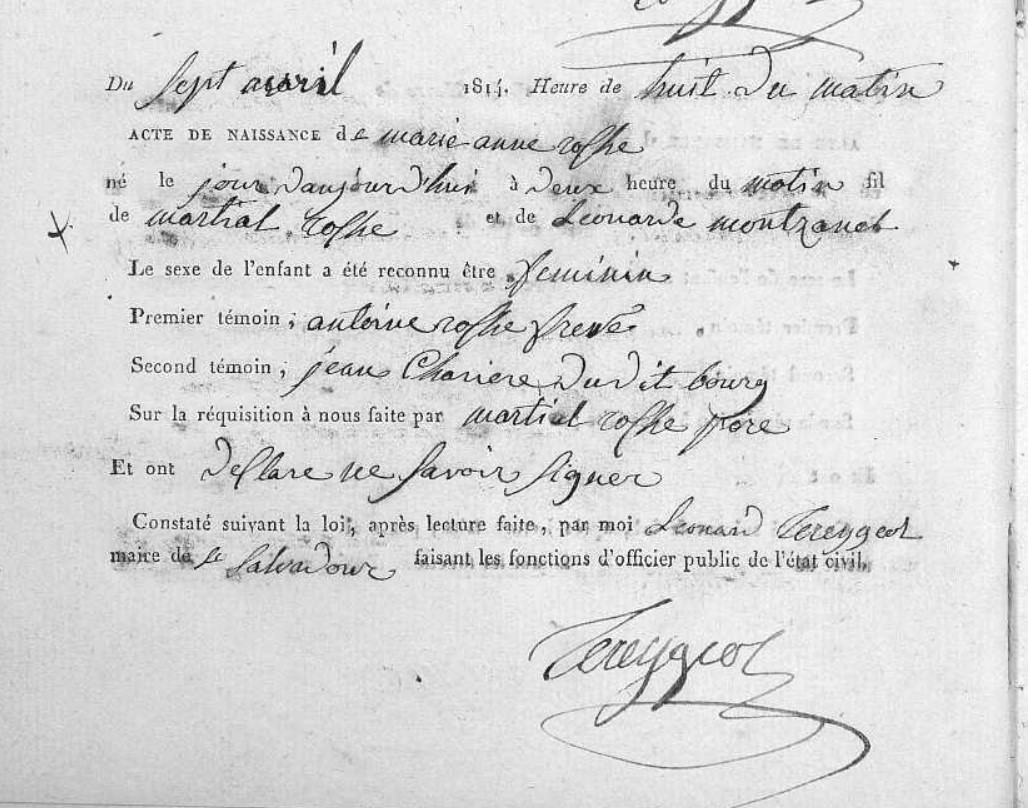 Du Sept avril 1814. Heure de huit du matin
ACTE DE NAISSANCE de marie anne roshe
né le jour d'aujourd'hui à deux heure du matin fil
de martial roshe et de Leonarde montzanet
Le sexe de l'enfant a été reconnu être feminin
Premier témoin, antoine roshe frere
Second témoin, jean Chariere du dit bourg
Sur la réquisition à nous faite par martial roshe pere
Et ont desclare ne savoir signer
Constaté suivant la loi, après lecture faite, par moi Leonard Tereygeol
maire de st Salvadour faisant les fonctions d'officier public de l'état civil.
Tereygeol